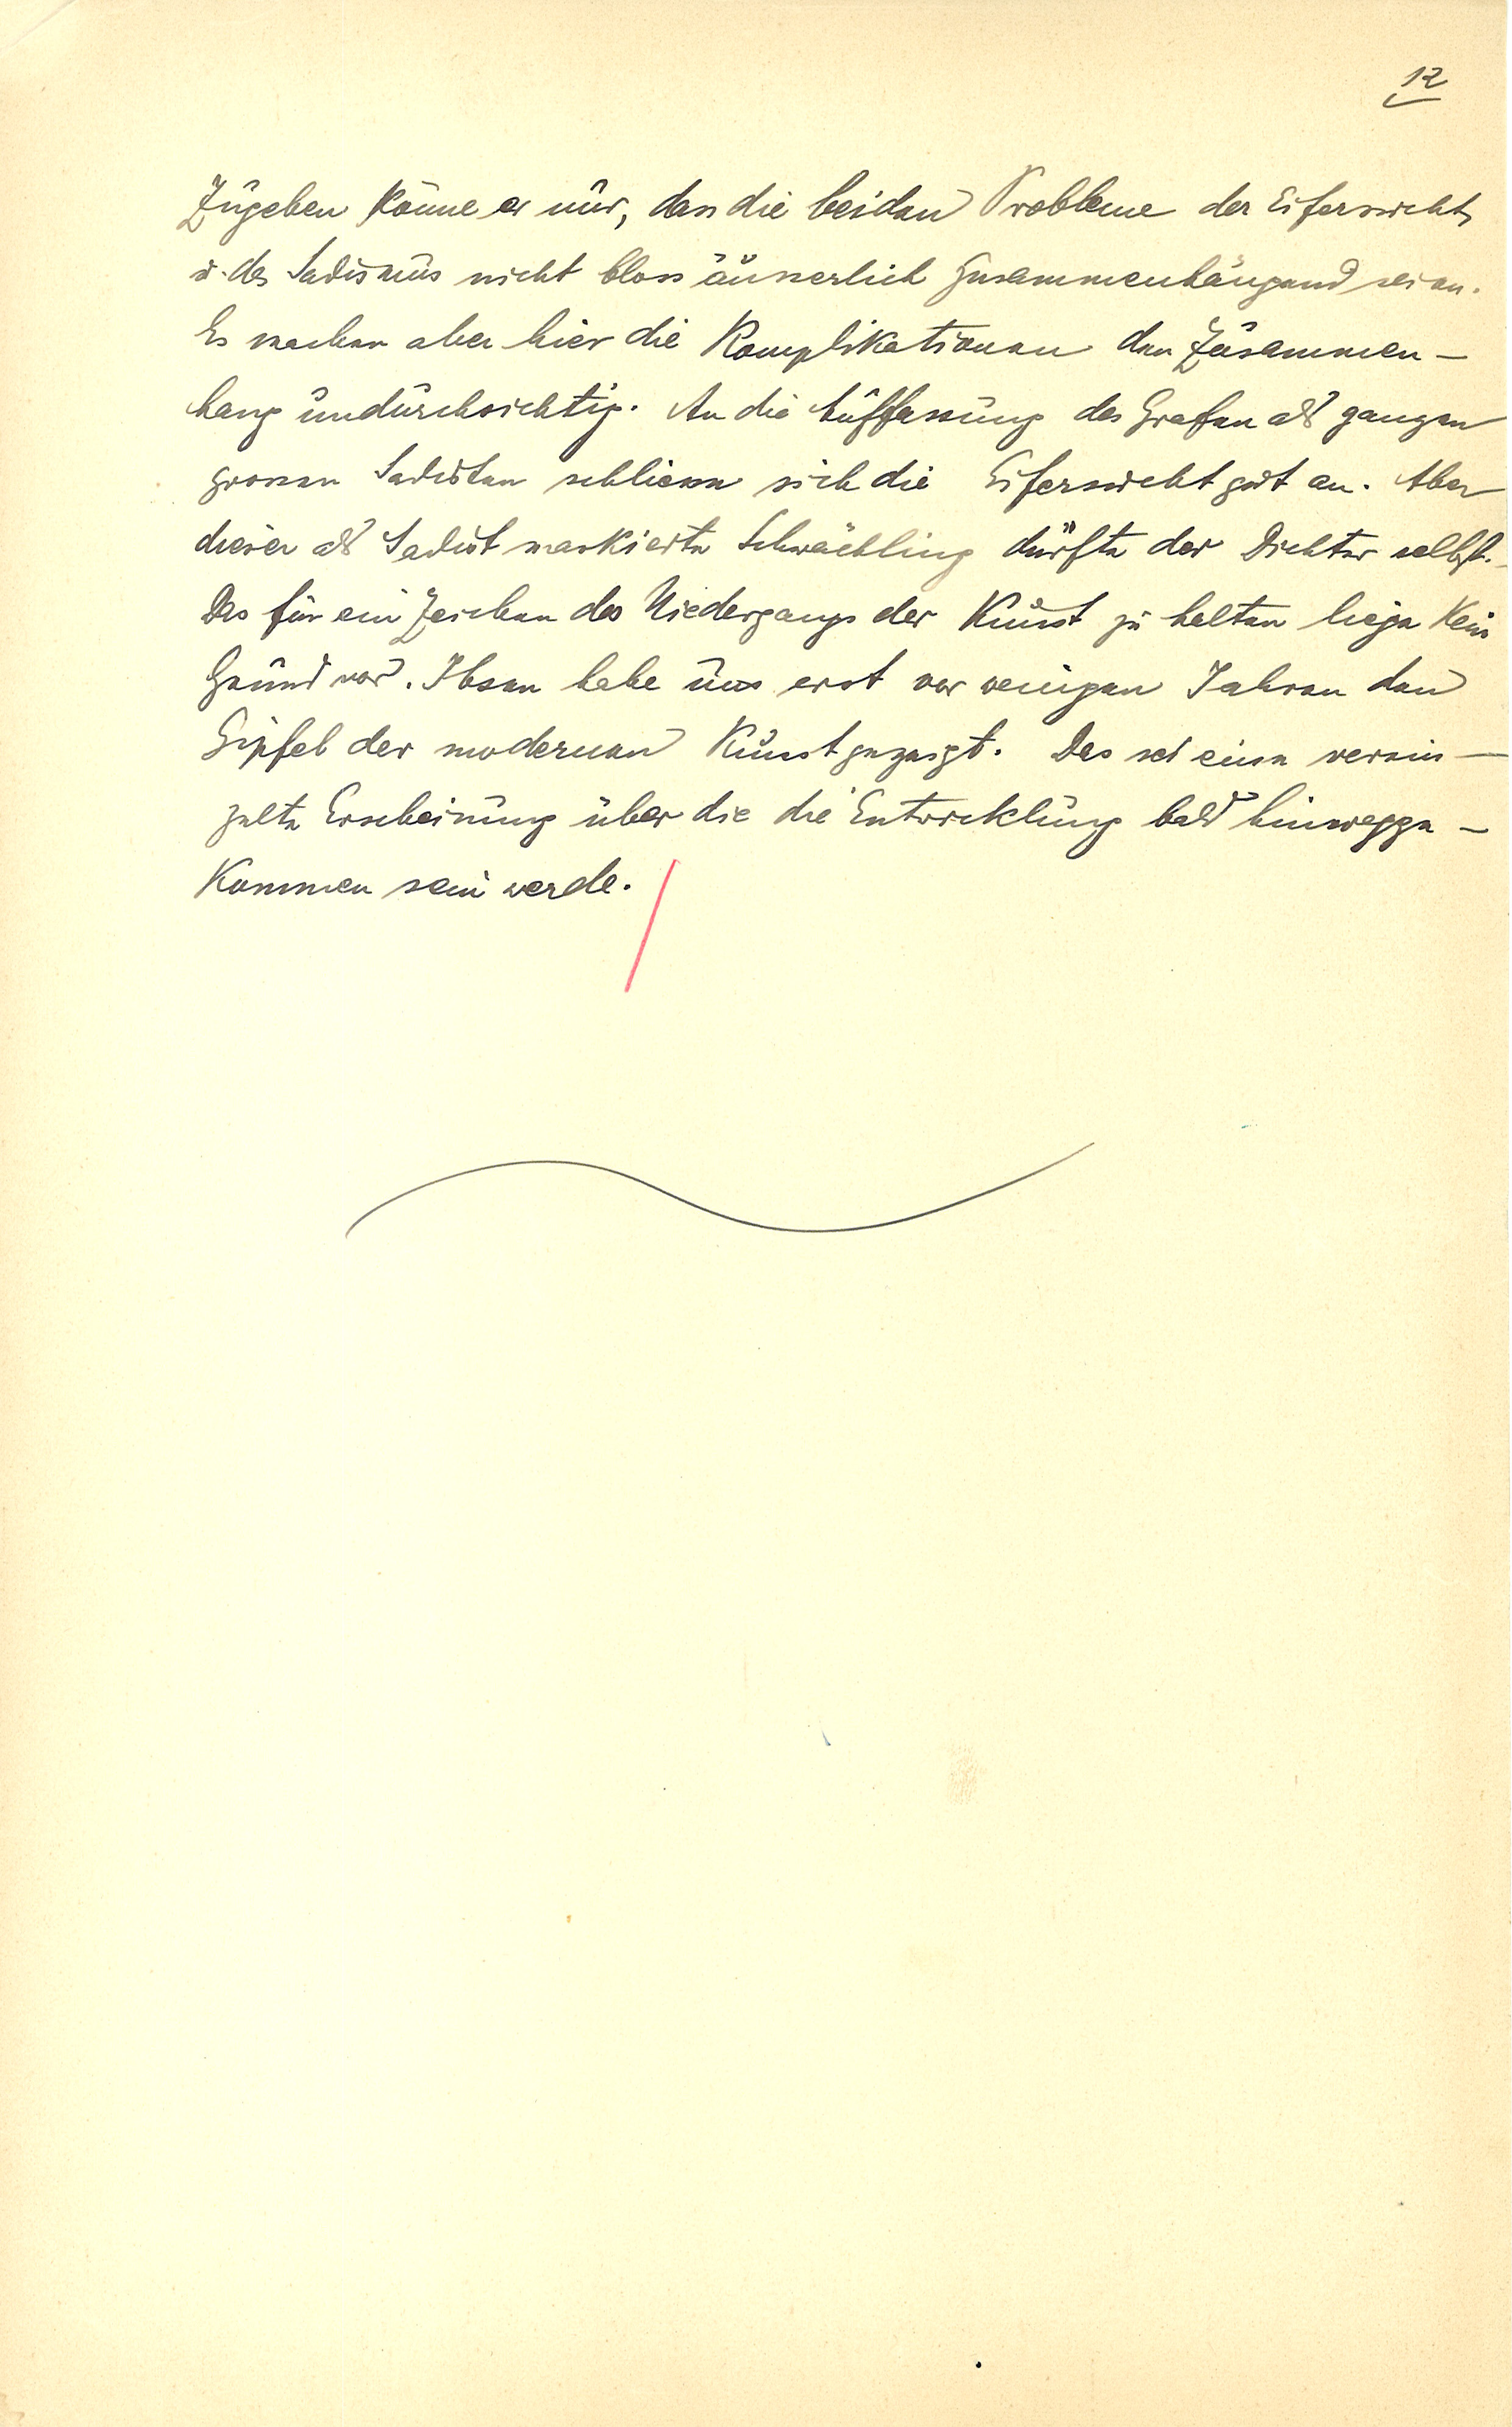 12
Zugeben könne er nur, dass die beiden Probleme der Eifersucht
u. des Sadismus nicht bloss äusserlich zusammenhängend seien.
Es machen aber hier die Komplikationen den Zusammen-
hang undurchsichtig. An die Auffassung des Grafen als ganzen
grossen Sadisten schliesse sich die Eifersucht gut an. Aber
dieser als Sadist maskierte Schwächling dürfte der Dichter selbst.
Das für ein Zeichen des Niedergangs der Kunst zu halten liege kein
Grund vor. Ibsen habe uns erst vor wenigen Jahren den
Gipfel der modernen Kunst gezeigt. Das sei eine verein-
zelte Erscheinung über die die Entwicklung bald hinwegge-
kommen sein werde.